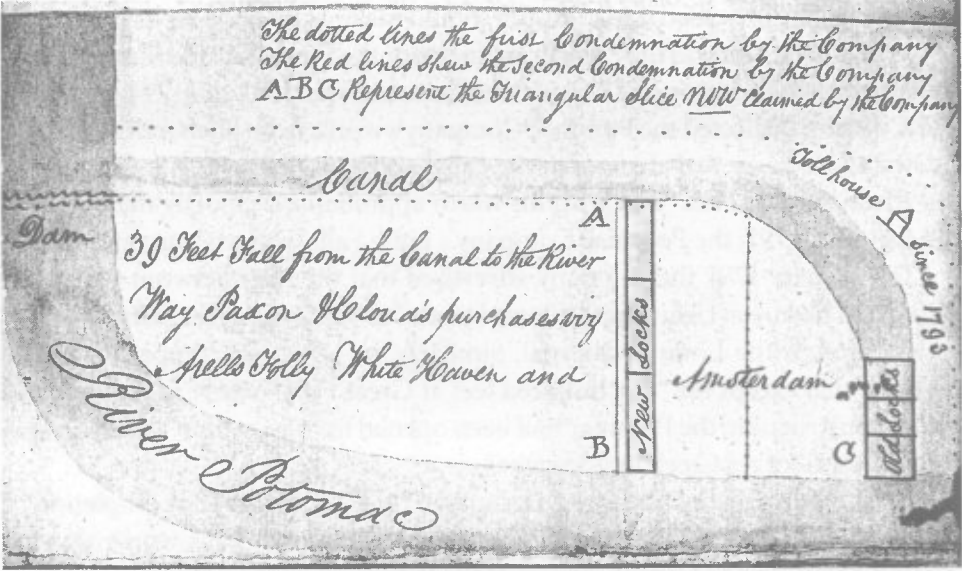 The dotted lines the first Condemnation by the Company
The Red lines shew the Second Condemnation by the Company
A B C Represent the Triangular Slice NOW Claimed by the Company
Canal
Tollhouse
Since 1793
Dam
A
39 Feet Fall from the Canal to the River
Way Paxon & Cloud's purchases
Arells Folly White Haven and
Amsterdam
New Locks
Old Locks
B
C
River Potomac